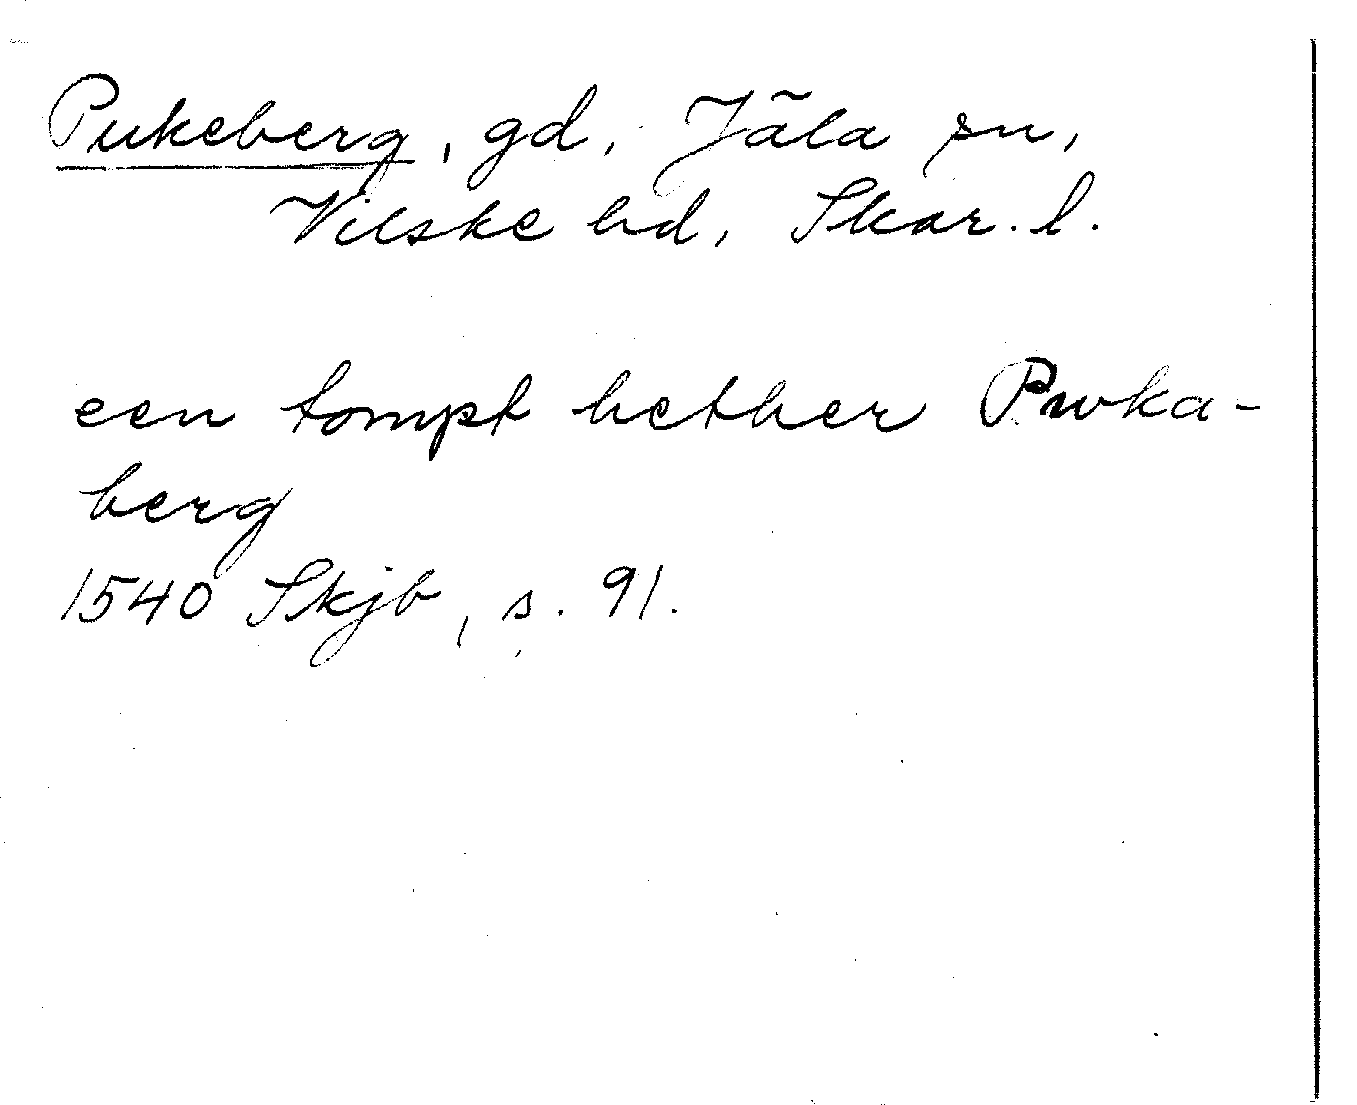 Pukeberg, gd, Jäla sn,
Vilske hd, Skar. l.
een tompt hether Pwka-
berg
1540 Skjb, s. 91.